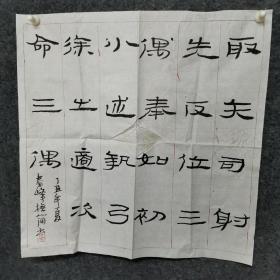 取矢司射
先反位三
偶奉如初
小述執弓
徐土適次
命三偶
丁丑年夏